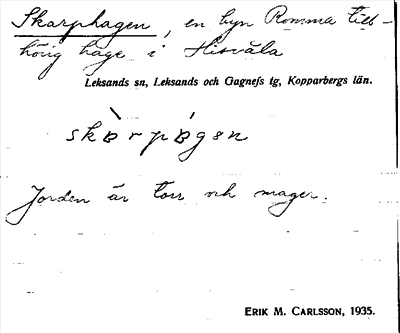 Skarphagen, en byn Romma till-
hörig hage i Hisvåla
Leksands sn, Leksands och Gagnefs tg, Kopparbergs län.
skàrpágen
Jorden är torr och mager.
ERIK M. CARLSSON, 1935.